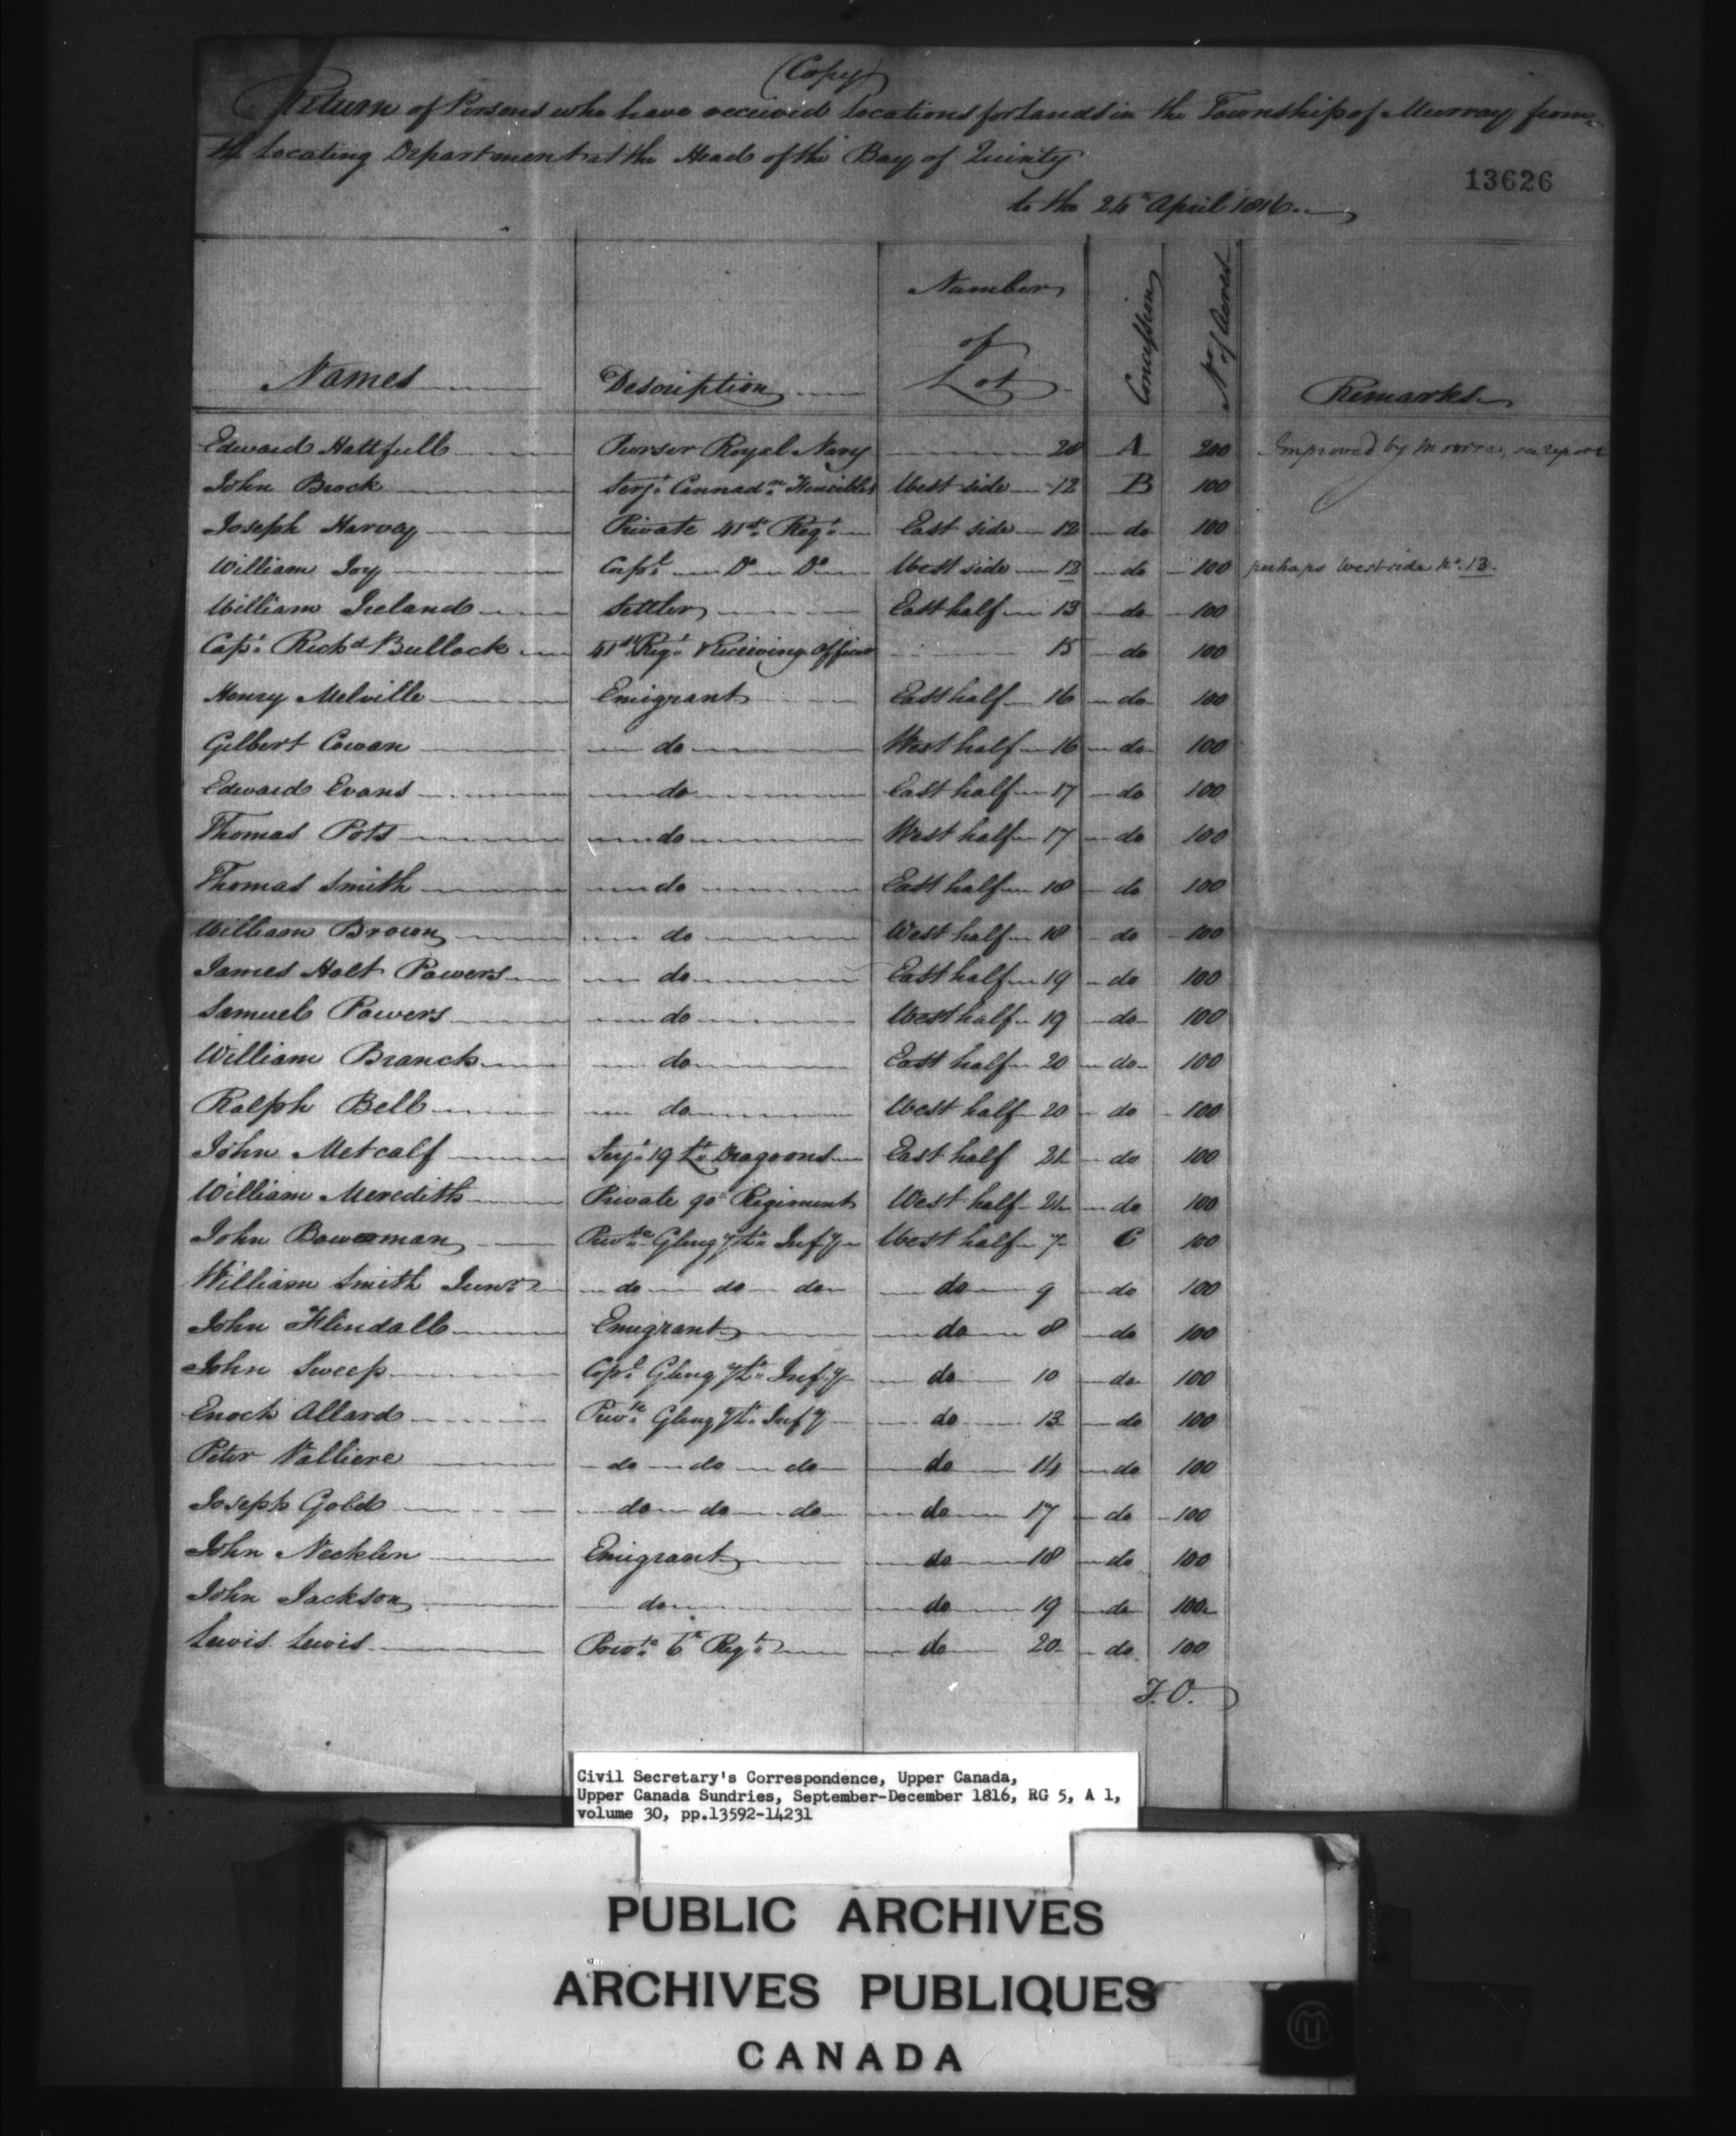 (Copy)
Return of Persons who have received Locations for Lands in the Township of Murray from
the Locating Department at the Head of the Bay of Quinty
13626
to the 24th April 1816.
Names Description Number of Lot Concession No. of Acres Remarks
Edward Hattfull Purser Royal Navy 20 A 200 Improved by see report
John Brock Serjt. Cannadn. Fencibles West side 12 B 100
Joseph Harvey Private 41st. Regt. East side 12 do 100
William Joy Corpl. Do Do West side 12 do 100 perhaps west side No. 13.
William Ireland Settler East half 13 do 100
Capt. Richd Bullock 41st Regt. & Receiving Officer 15 do 100
Henry Melville Emigrant East half 16 do 100
Gilbert Cowan do West half 16 do 100
Edward Evans do East half 17 do 100
Thomas Pots do West half 17 do 100
Thomas Smith do East half 18 do 100
William Brown do West half 18 do 100
James Holt Powers do East half 19 do 100
Samuel Powers do West half 19 do 100
William Branch do East half 20 do 100
Ralph Bell do West half 20 do 100
John Metcalf Serjt. 19th Dragoons East half 21 do 100
William Meredith Private 90th Regiment West half 21 do 100
John Bowerman Privte. Glengy Lt. Infy West half 7 C 100
William Smith Junr. do do do do 9 do 100
John Klindall Emigrant do 8 do 100
John Sweep Copl. Glengy Lt. Infy do 10 do 100
Enoch Allard Privte. Glengy Lt. Infy do 13 do 100
Peter Valliere do do do do 14 do 100
Joseph Gold do do do do 17 do 100
John Necklen Emigrant do 18 do 100
John Jackson do do 19 do 100
Lewis Lewis Privte. 6th Regt. do 20 do 100
F. O.
Civil Secretary's Correspondence, Upper Canada,
Upper Canada Sundries, September-December 1816, RG 5, A 1,
volume 30, pp.13592-14231
PUBLIC ARCHIVES
ARCHIVES PUBLIQUES
CANADA